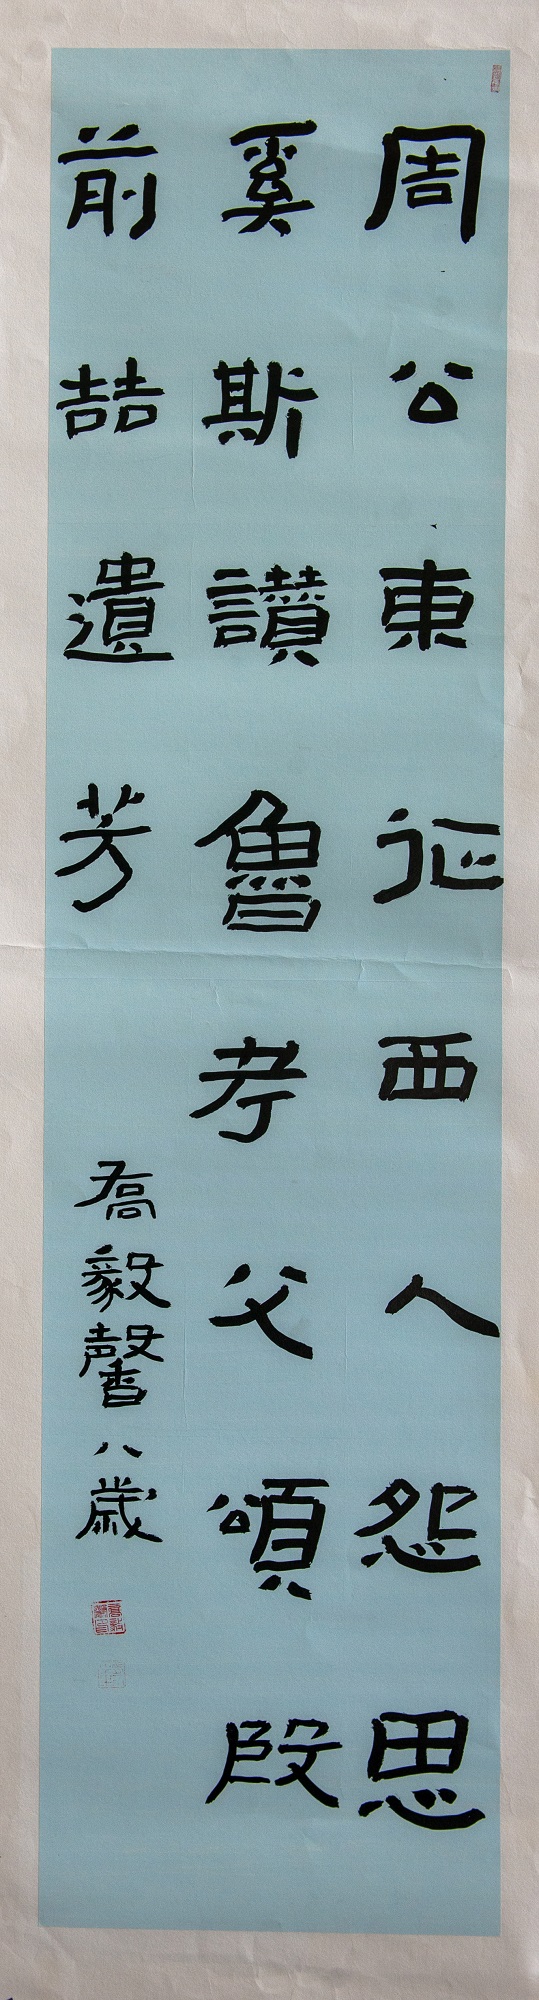 周公東征西人怨思
奚斯讃魯考父頌殷
前喆遺芳
喬毅馨八歲